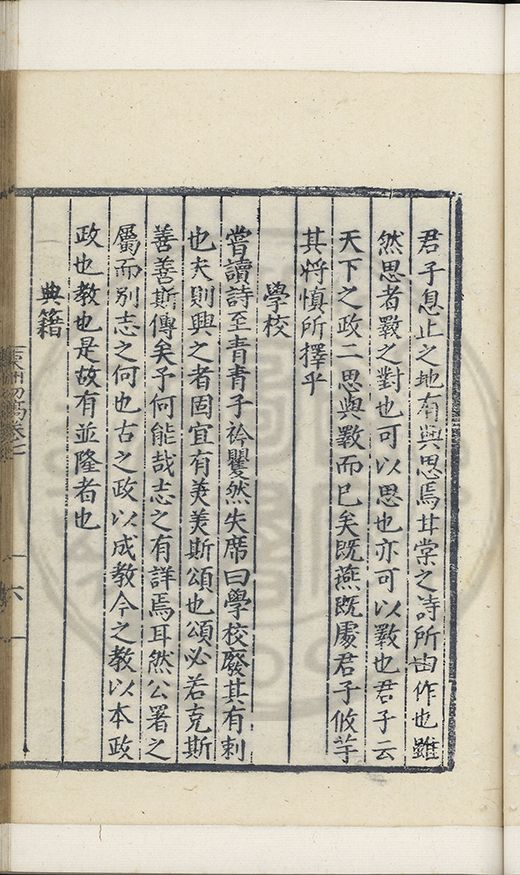 君子息止之地有與思焉甘棠之詩所由作也雖
然思者斁之對也可以思也亦可以斁也君子云
天下之政二思與斁而已矣既燕既處君子攸芋
其將慎所擇乎
學校
嘗讀詩至青青子衿瞿然失席曰學校廢其有刺
也夫則興之者固宜有美美斯頌也頌必若克斯
善善斯傳矣予何能哉志之有詳焉耳然公署之
屬而別志之何也古之政以成教今之教以本政
政也教也是故有並隆者也
典籍
東洲初稿卷七
六